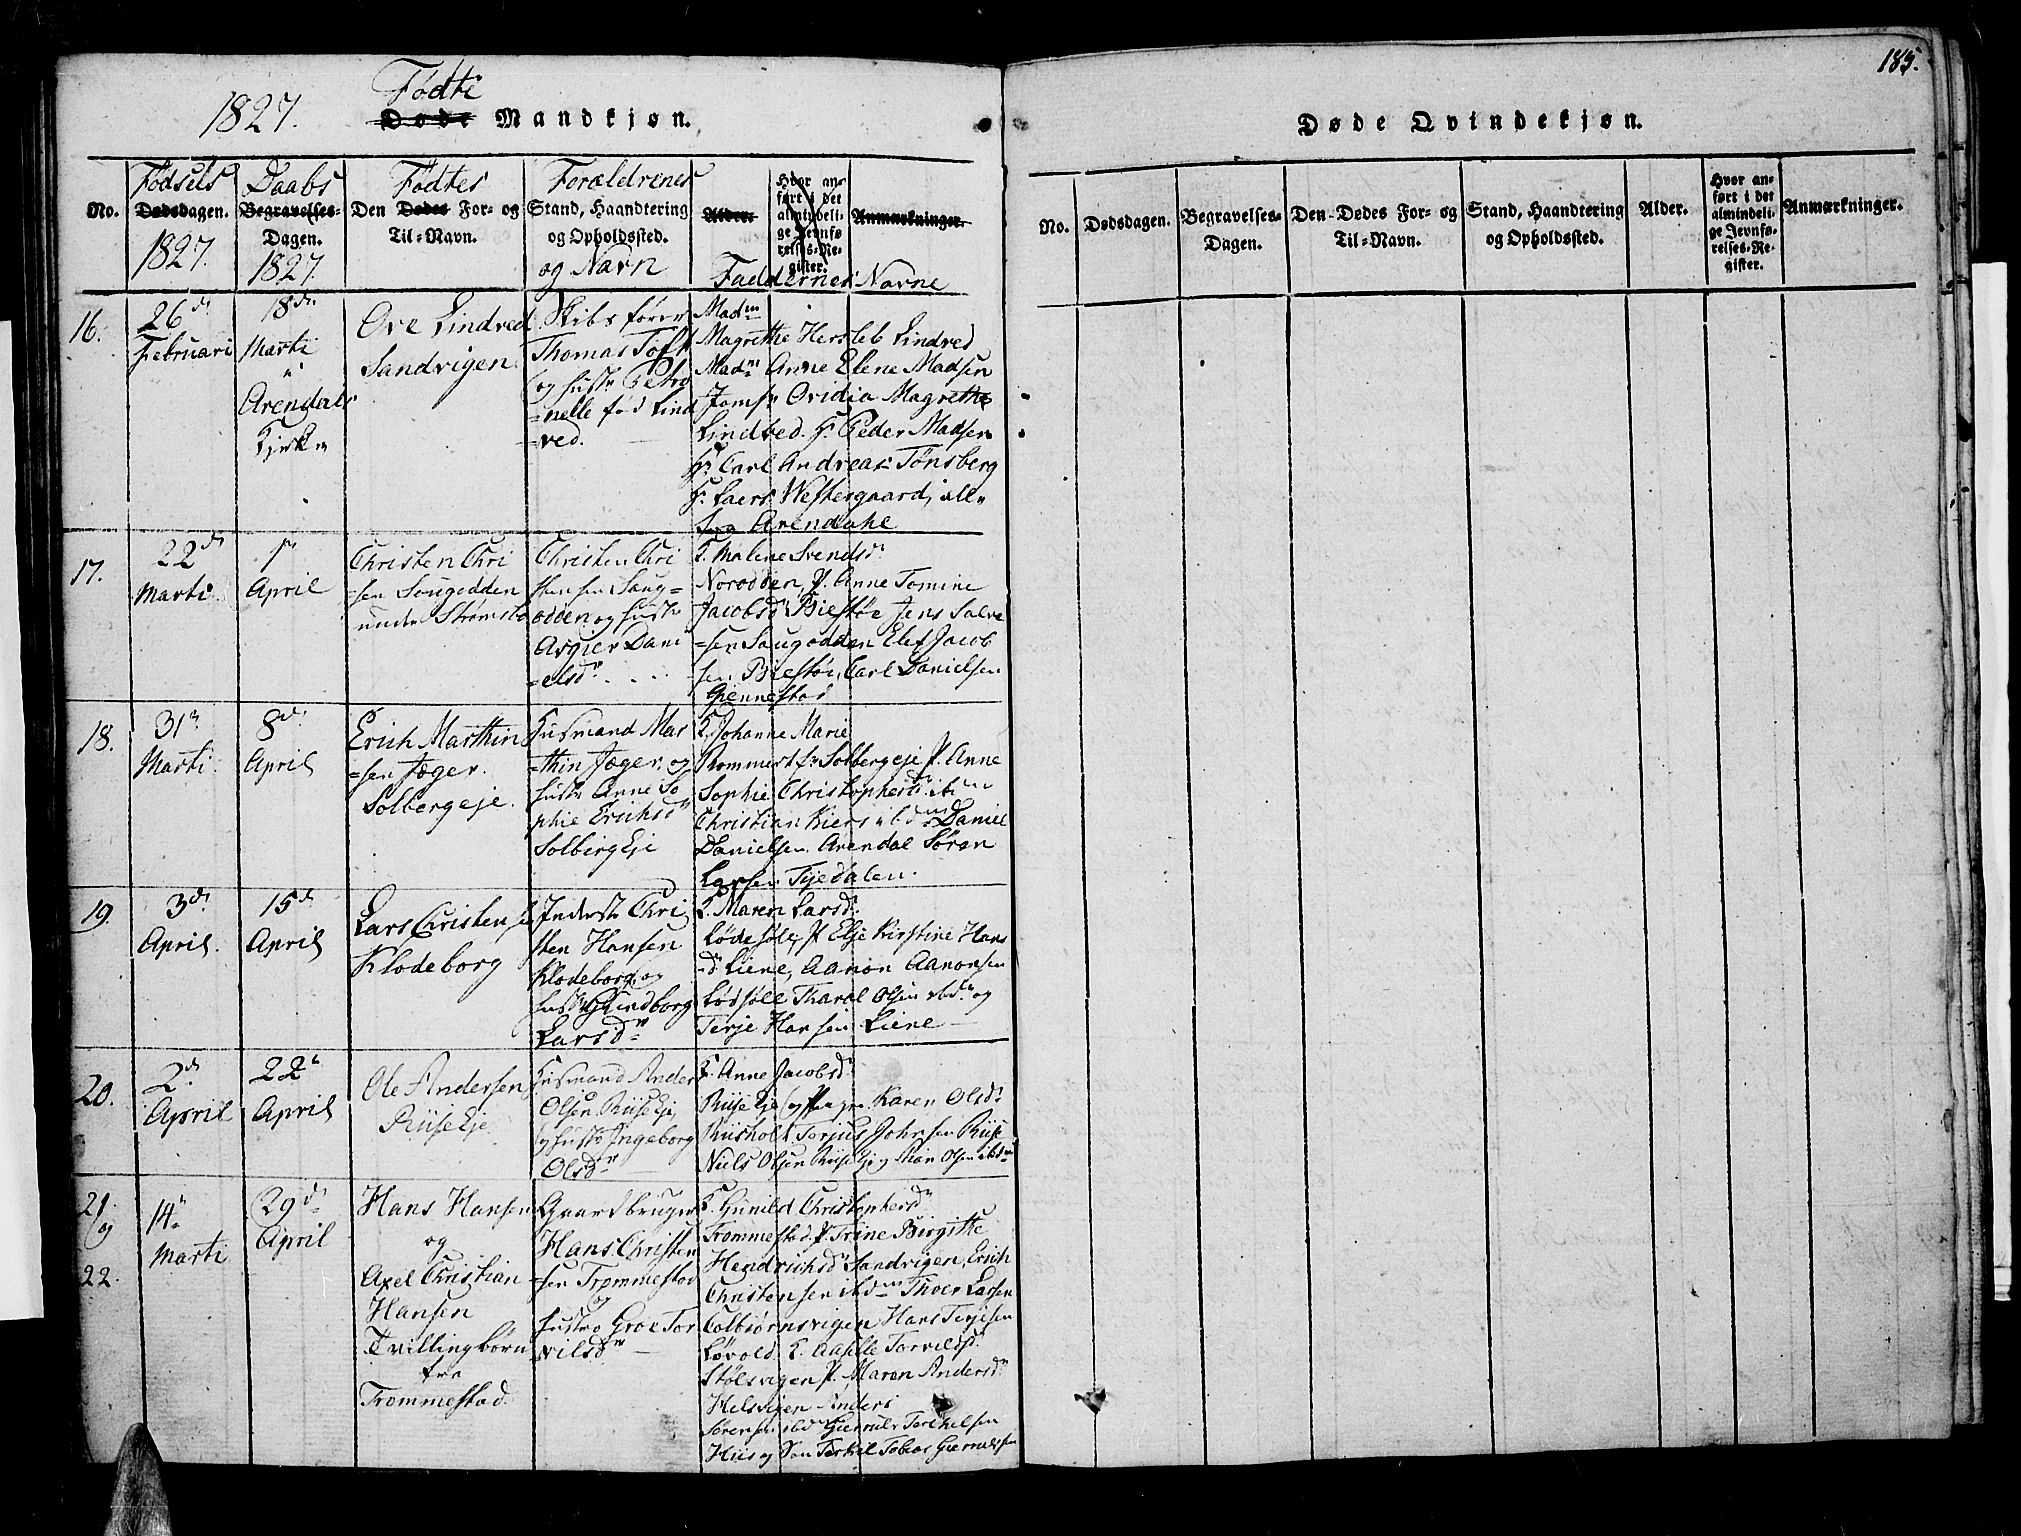 1827. Fødte
Døde Mandkjøn.
No.
Fødsels
Dødsdagen.
1827.
Daabs
Begravelses-
Dagen.
1827
Fødtes
Den Dødes For- og
Til-Navn.
Forældrenes
Stand, Haandtering
og Opholdssted.
og Navn
Alder.
Hvor an-
ført i det
almindeli-
ge Jevnfø-
relses-Re-
gister.
Anmærkninger.
Faddernes Navne
16.
26de
Februari
18de
Marti
Arendals
Kirke
Ove Lindved
Sandvigen
Skibsfører
Thomas Toft
og hustr Petro
=nelle fød Lind
=ved.
Madm
Magrethe Hersleb Lindved
Madm Anne Elene Madsen
Jomfr Ovidia Magrethe
Lindved. Hr Peder Madsen
Hr Carl Andreas Tønsberg
Hr Laers Westergaard, alle
fra Arendahl
17.
22de
Marti.
April
Christen Chri
=sen Saugodden
under Strømsbo
Christen Chri
stensen Saug=
odden og hustr
Asgier Dani
=elsdr
F. Malene Svendsdr
Norodden, P. Anne Tomine
Jacobsdr Biestøe Jens Salve
=sen Saugodden Elef Jacob
sen Biestøe, Carl Danielsen
Giennestad
18.
31te
Marti.
8de
April
Erich Marthin
=sen Jæger.
Solbergeje.
Husmand Mar
=thin Jæger, og
hustr Anne So
phie Erichsdr
Solberg Eje
F. Johanne Marie
Rommert fr Solbergeje P. Anne
Sophie Christophersdr ibm
Christian Kiers ibdm Daniel
Danielsen Arendal Søren
Larsen Tjedalen.
19.
3de
April.
15de
April
Lars Christensen
Klodeborg
Inderst Chri
sten Hansen
Klodeborg og
hustr Gundborg
Larsdr
F. Maren Larsdr
Lødesøle, P Elje Kirstine Hans
=dr Liene, Aanon Aanonsen
Lødsøle Tharal Olsen ibdm og
Terje Hansen Liene
20.
2de
April
22de
April
Ole Andersen
Riise Eje
Husmand Anders
Olsen Riise Eje,
og hustr Ingeborg
Olsdr
F. Anne Jacobsdr
Riise Eje Karen Olsdr
Riisholt Torjus Johnsen Riise
Niels Olsen Riise Eje og Olsen ibdm
21.
og
22.
14de
Marti
29de
April
Hans Hansen
og
Axel Christian
Hansen
Tvillingbørn
fra
Trommestad.
Gaardbruger
Hans Christen
=sen Trommestad
og
hustro Groe Tor
vilsdr
F. Gunild Christophersdr
Trommestad. P. Trine Birgitte
Hendrichsdr Sandvigen, Erich
Christensen ibdm Thoer Larsen
Colbiørnsvigen Hans Terjesen
Løvold. F. Aasille Torvildsdr
Stølsvigen P. Maren Andersdr
Helsvigen Anders
Sørensen ibd Giermuls Terchelsen
Hiis og Søn Terkil Tobias Giermulsen
185.
Døde Qvindekjøn.
No.
Dødsdagen.
Begravelses-
Dagen.
Den Dødes For- og
Til-Navn.
Stand, Haandtering
og Opholdssted.
Alder.
Hvor an-
ført i det
almindeli-
ge Jevnfø-
relses-Re-
gister.
Anmærkninger.